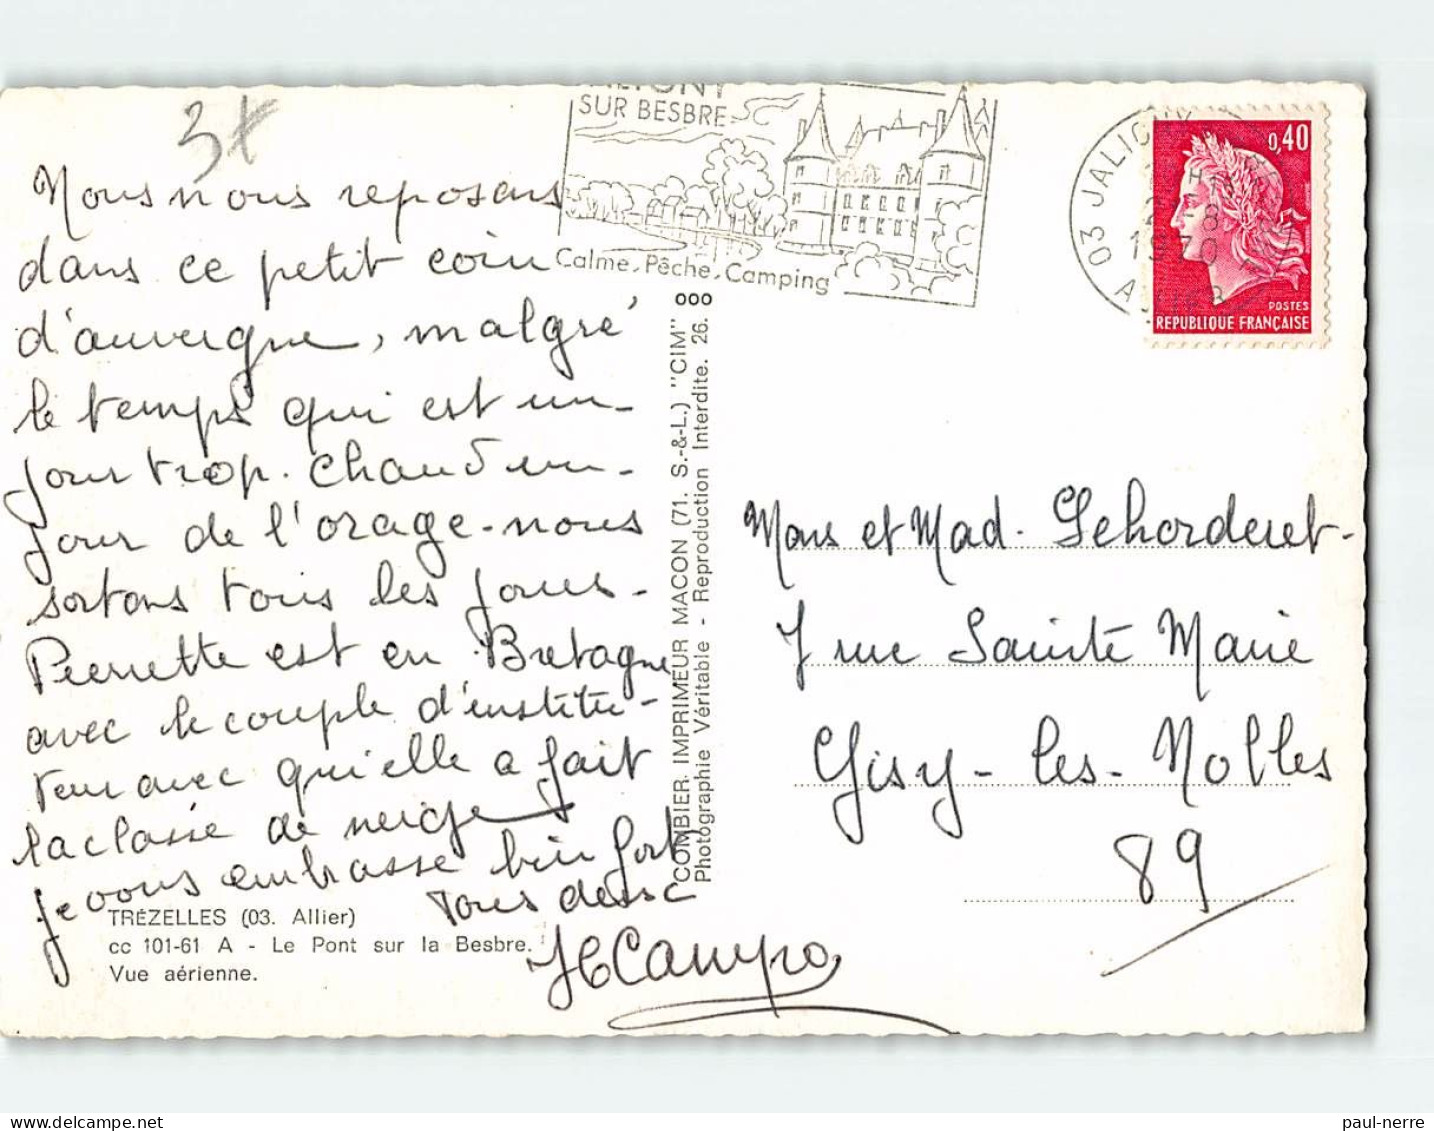 3
SUR BESBRE
Calme. Pêche. Camping
03 JALIGNY
1970
0,40
POSTES
REPUBLIQUE FRANÇAISE
Nous nous reposons
dans ce petit coin
d'auvergne, malgré
le temps qui est un
jour trop chaud un
jour de l'orage - nous
sortons tous les jours -
Pierrette est en Bretagne
avec le couple d'institu-
teur avec qui elle a fait
la classe de neige
je vous embrasse bien fort
Tous deux
HCampo
TRÉZELLES (03. Allier)
cc 101-61 A - Le Pont sur la Besbre.
Vue aérienne.
COMBIER IMPRIMEUR MACON (71. S.-&-L.) "CIM"
Photographie Véritable - Reproduction Interdite. 26.
Mons et Mad. Lehorderet -
7 rue Sainte Marie
Gisy - les - Nobles
89
delcampe.net
paul-nerre